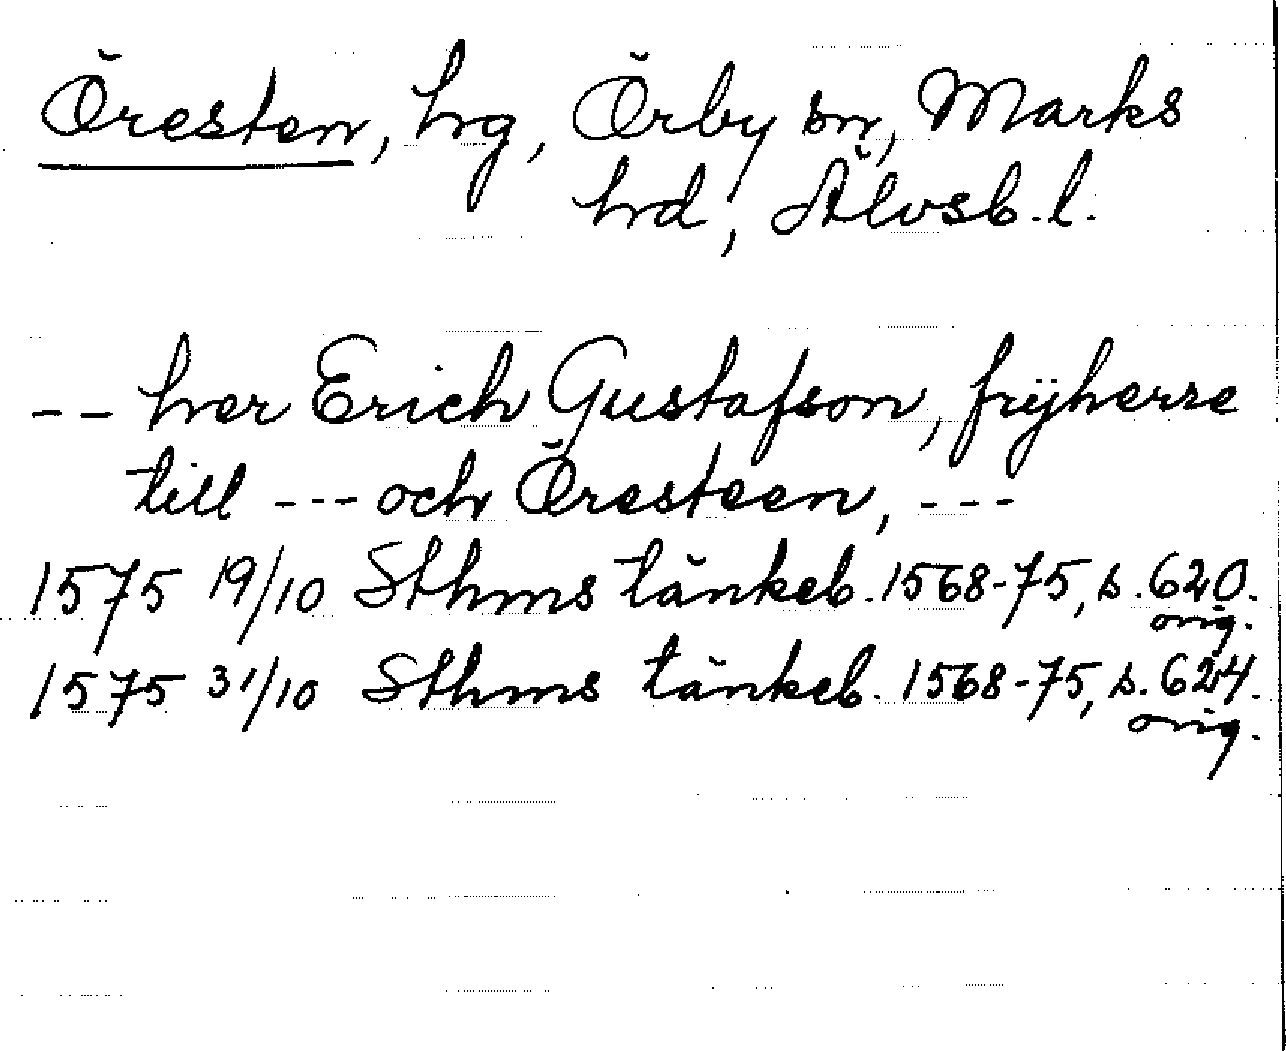 Öresten, hg, Örby sn, Marks
hrd, Älvsb. l.
-- her Erich Gustafson, frÿherre
till --- och Öresteen, ---
1575 19/10 Sthms tänkeb. 1568-75, s. 620.
orig.
1575 31/10 Sthms tänkeb. 1568-75, s. 624.
orig.